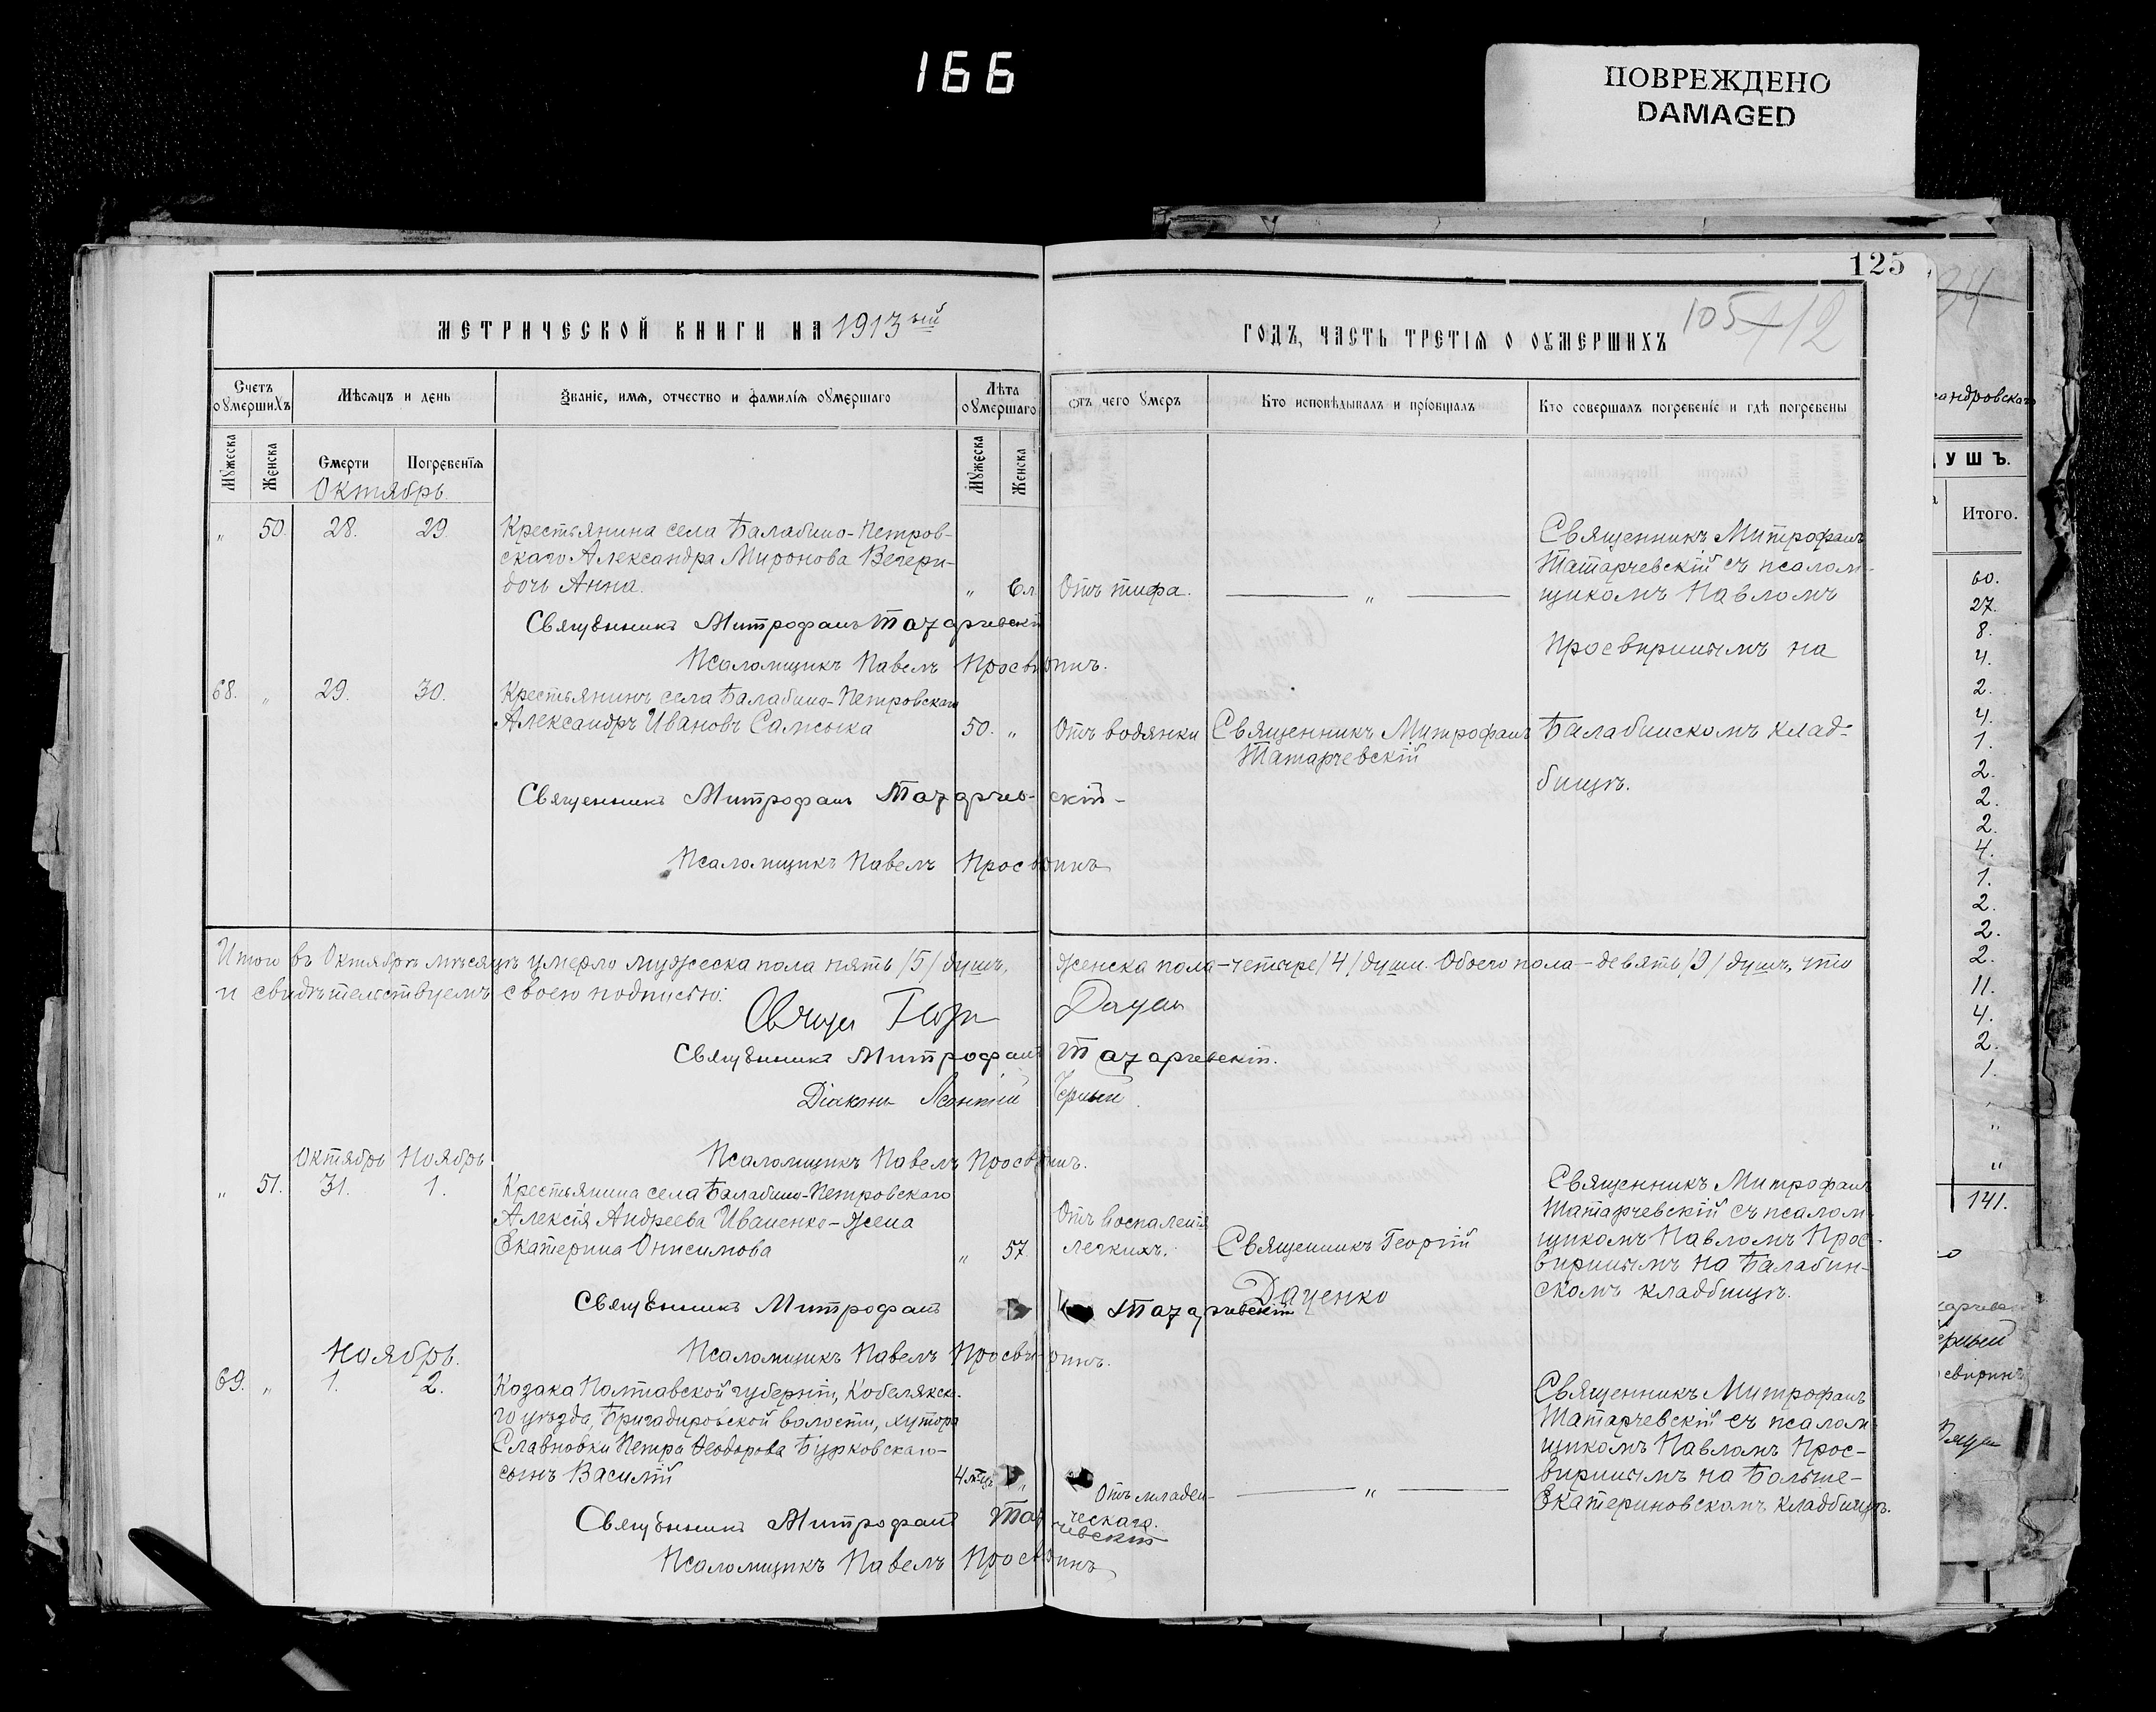 166
ПОВРЕЖДЕНО
DAMAGED
125
105 112
34
МЕТРИЧЕСКОЙ КНИГИ НА 1913ый
ГОДЪ, ЧАСТЬ ТРЕТІЯ О ОУМЕРШИХЪ
Счетъ оумершихъ
Мѣсяцъ и день
Званіе, имя, отчество и фамилія оумершаго
Лѣта оумершаго
отъ чего умеръ
Кто исповѣдывалъ и пріобщалъ
Кто совершалъ погребеніе и гдѣ погребены
Мужеска
Женска
Смерти
Погребенія
Мужеска
Женска
Октябрь
„ 50. 28. 29.
Крестьянина села Балабино-Петров-
скаго Александра Миронова Вечери-
дочь Анна. „ 6 л
Отъ тифа. „
Священникъ Митрофанъ
Татарчевскій съ псалом-
щикомъ Павломъ
Просвиринымъ на
Балабинскомъ клад-
бищѣ.
Священникъ Митрофанъ Татарчевскій
Псаломщикъ Павелъ Просвиринъ.
68. „ 29. 30.
Крестьянинъ села Балабино-Петровскаго
Александръ Ивановъ Самсыка 50. „
Отъ водянки
Священникъ Митрофанъ
Татарчевскій
Священникъ Митрофанъ Татарчев-скій-
Псаломщикъ Павелъ Просвиринъ
Итого въ Октябрѣ мѣсяцѣ умерло мужеска пола пять /5/ душъ, женска пола-четыре /4/ души. Обоего пола-девять /9/ душъ, что
и свидѣтельствуемъ своею подписью:
Священникъ Митрофанъ Татарчевскій.
Діаконъ Леонтій Черный
Псаломщикъ Павелъ Просвиринъ.
Октябрь Ноябрь
„ 51. 31. 1.
Крестьянина села Балабино-Петровскаго
Алексія Андреева Иваненко-жена
Екатерина Онисимова „ 57
Отъ воспаленія
легкихъ.
Священникъ Георгій
Даценко
Священникъ Митрофанъ
Татарчевскій съ псалом-
щикомъ Павломъ Прос-
виринымъ на Балабин-
скомъ кладбищѣ.
Священникъ Митрофанъ Татарчевскій
Псаломщикъ Павелъ Просвиринъ.
Ноябрь.
69. „ 1. 2.
Козака Полтавской губерніи, Кобелякска-
го уѣзда, Бригадировской волости, хутора
Славновки Петра Ѳеодорова Бурковскаго-
сынъ Василій 4 мѣц „
Отъ младен-
ческаго.
„
Священникъ Митрофанъ
Татарчевскій съ псалом-
щикомъ Павломъ Прос-
виринымъ на Больше-
Екатериновскомъ кладбищѣ.
Священникъ Митрофанъ Татарчевскій
Псаломщикъ Павелъ Просвиринъ
андровскаго
УШЪ.
Итого.
60.
27.
8.
4.
2.
4.
1.
2.
2.
2.
4.
1.
2.
2.
2.
11.
4.
2.
1.
„
„
„
141.